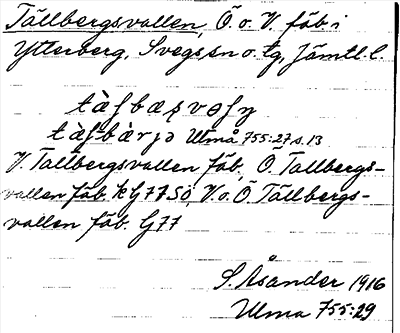 Tällbergsvallen, Ö. o. V. fäb. i
Ytterberg, Svegs sn o. tg, Jämtl. l.
Ulmå 755:27 s. 13
V. Tallbergsvallen fäb. Ö. Tallbergs-
vallen fäb. k G77 SO, V. o. Ö. Tällbergs-
vallen fäb. G77
S. Åsander 1916
Ulma 755:29